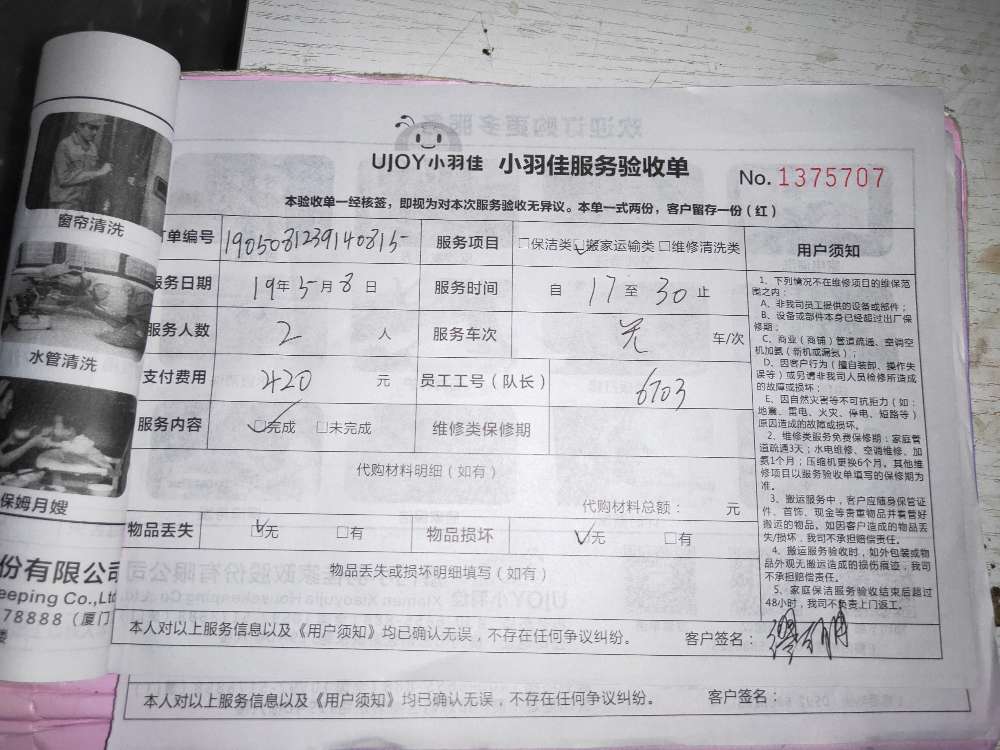 UJOY小羽佳 小羽佳服务验收单
No. 1375707
本验收单一经核签，即视为对本次服务验收无异议。本单一式两份，客户留存一份（红）
单编号 1905081239140815 服务项目 □保洁类 □搬家运输类 □维修清洗类
服务日期 19年5月8日 服务时间 自 17 至 30 止
服务人数 2 人 服务车次 无 车/次
支付费用 420 元 员工工号（队长） 6703
服务内容 □完成 □未完成 维修类保修期
代购材料明细（如有）
代购材料总额： 元
物品丢失 □无 □有 物品损坏 □无 □有
物品丢失或损坏明细填写（如有）
本人对以上服务信息以及《用户须知》均已确认无误，不存在任何争议纠纷。 客户签名：
本人对以上服务信息以及《用户须知》均已确认无误，不存在任何争议纠纷。 客户签名：
用户须知
1、下列情况不在维修项目的维保范
围之内：
A、非我司员工提供的设备或部件；
B、设备或部件本身已经超过出厂保
修期；
C、商业（商铺）管道疏通、空调空
机加氨（新机或漏氨）；
D、因客户行为（擅自装卸、操作失
误等）或另请非我司人员检修所造成
的故障或损坏；
E、因自然灾害等不可抗拒力（如：
地震、雷电、火灾、停电、短路等）
原因造成的故障或损坏。
2、维修类服务免费保修期：家庭管
道疏通3天；水电维修、空调维修、加
氨1个月；压缩机更换6个月。其他维
修项目以服务验收单填写的保修期为
准。
3、搬运服务中，客户应随身保管证
件、首饰、现金等贵重物品并看管好
搬运的物品。如因客户造成的物品丢
失/损坏，我司不承担赔偿责任。
4、搬运服务验收时，如外包装或物
品外观无搬运造成的损伤痕迹，我司
不承担赔偿责任。
5、家庭保洁服务验收结束后超过
48小时，我司不负责上门返工。
窗帘清洗
水管清洗
保姆月嫂
份有限公司
eeping Co.,Ltd
78888（厦门
楼